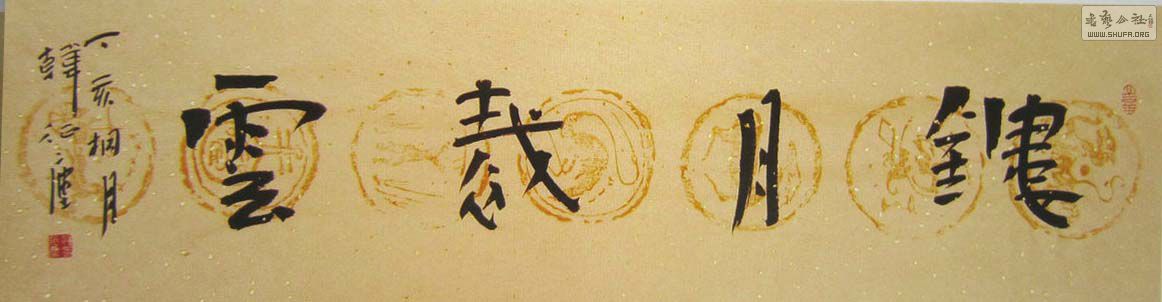 鏤月裁雲
丁亥桐月
韓
書藝公社
WWW.SHUFA.ORG